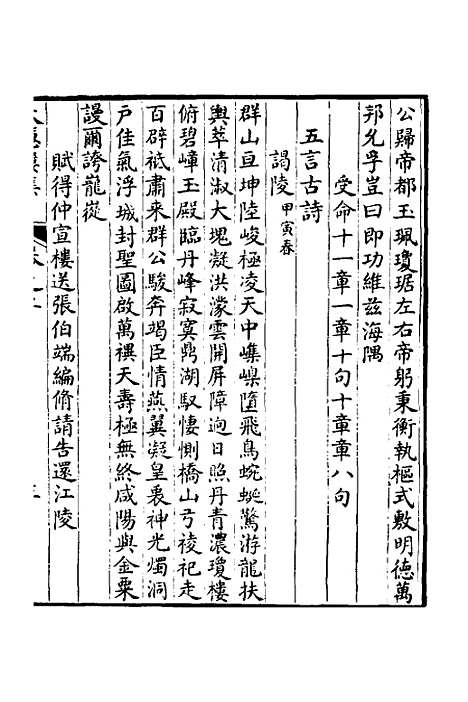 公歸帝都玉珮瓊琚左右帝躬秉衡執樞式敷明德萬
邦允孚豈曰即功維茲海隅
受命十一章一章十句十章章八句
五言古詩
謁陵甲寅春
群山亘坤陸峻極凌天中巑嵲墮飛鳥蜿蜒驚游龍扶
輿萃清淑大塊凝洪濛雲開屏障逈日照丹青濃瓊樓
俯碧嶂玉殿臨丹峰寂寞鼎湖馭悽惻橋山弓祾祀走
百辟祗肅來群公駿奔竭臣情燕翼凝皇衷神光燭洞
戶佳氣浮城封聖圖啟萬禩天壽極無終咸陽與金粟
謾爾誇巃嵸
賦得仲宣樓送張伯端編脩請告還江陵